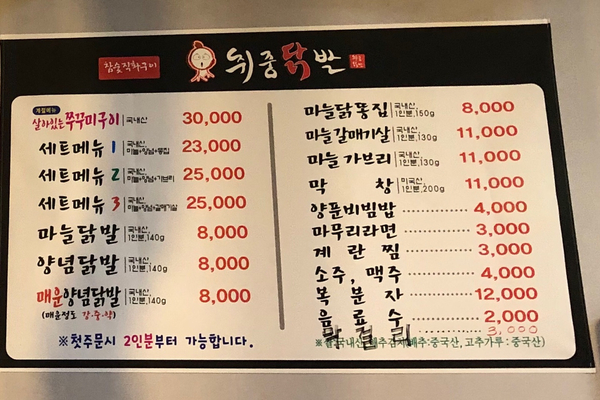 참숯직화구이
취중닭발
계절메뉴
살아있는쭈꾸미구이 국내산 30,000
세트메뉴 1 국내산 23,000
세트메뉴 2 국내산 25,000
세트메뉴 3 국내산 25,000
마늘닭발 국내산, 1인분,140g 8,000
양념닭발 국내산, 1인분,140g 8,000
매운양념닭발 국내산, 1인분,140g 8,000
(매운정도 강·중·약)
※첫주문시 2인분부터 가능합니다.
마늘닭똥집 국내산, 1인분,150g 8,000
마늘갈매기살 국내산, 1인분,130g 11,000
마늘가브리 국내산, 1인분,130g 11,000
막창 미국산, 1인분,200g 11,000
양푼비빔밥 4,000
마무리라면 3,000
계란찜 3,000
소주, 맥주 4,000
복분자 12,000
음료수 2,000
막걸리 3,000
배추:중국산, 고추가루:중국산)